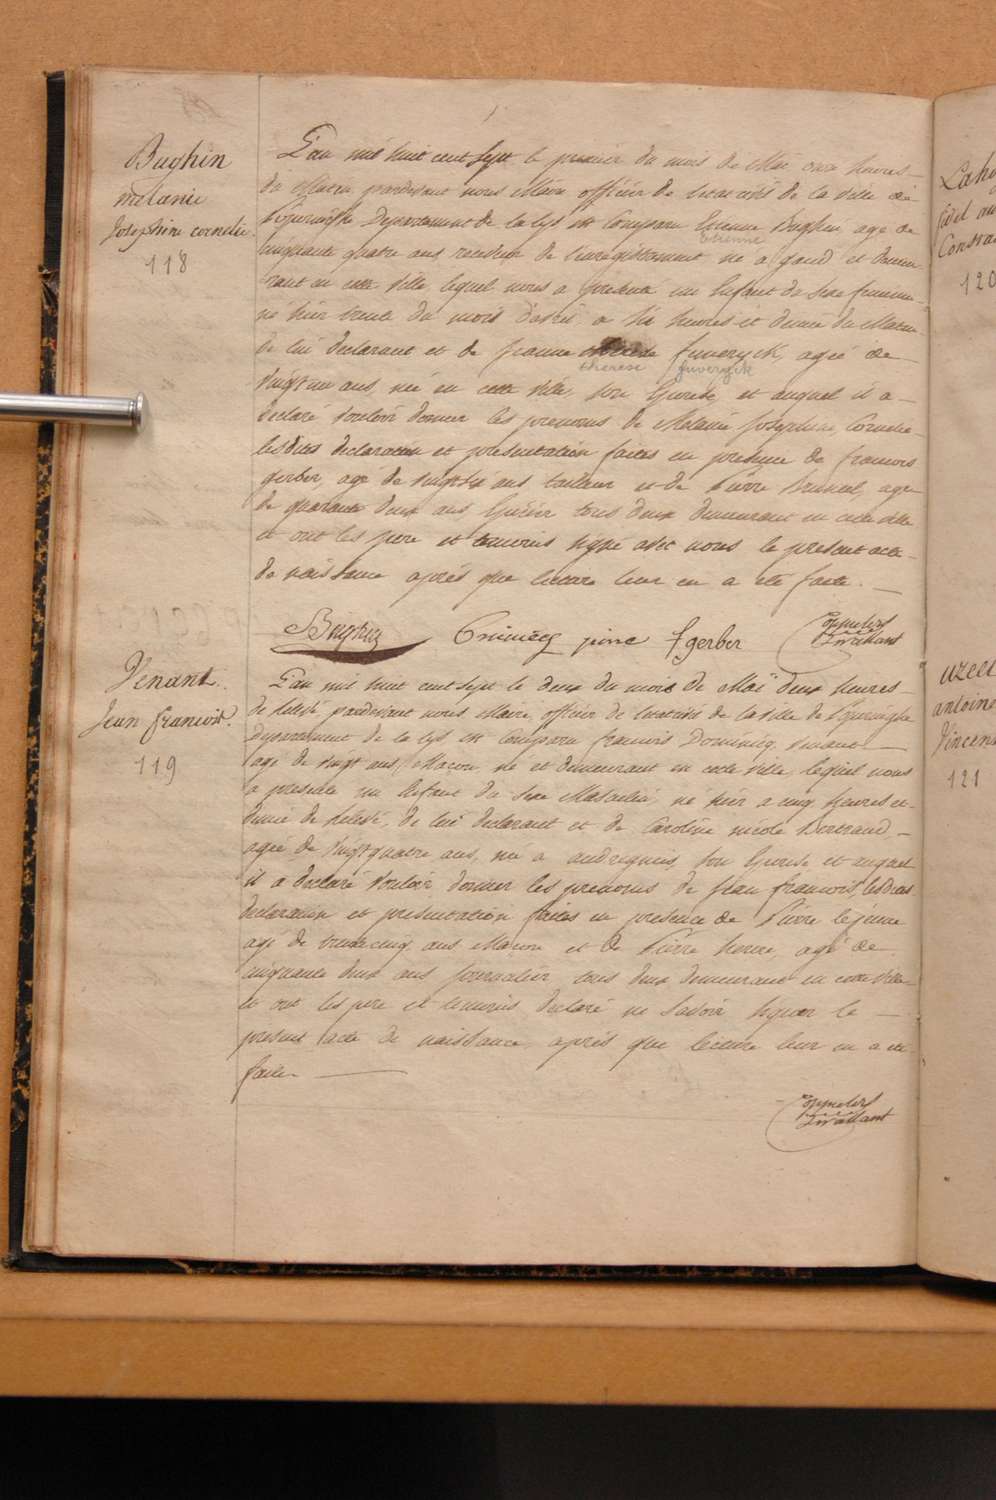 Bughin
melanie
Josephine cornelie
118
L'an mil huit cent sept le premier du mois de Mai onze heures
du Matin pardevant nous Maire officier de l'etat civil de la ville de
Poperinghe Departement de la Lys est Comparu Etienne Bughin, agé de
Etienne
cinquante quatre ans receveur de l'enregistrement né a gand et demeu
rant en cette ville, lequel nous a presenté un Enfant du sexe feminin
né hier trente du mois d'avril a six heures et demie du Matin
de lui declarant et de jeanne therese Juveryck, agée de
therese Juveryck
vingt un ans, née en cette ville, son Epouse, et auquel il a
declaré vouloir donner les prenoms de Melanie Josephine, Cornelie
lesdites declaration et presentation faites en presence de francois
gerber, agé de vingt six ans tailleur et de Pierre, agé
de quarante deux ans, tous deux demeurant en cette ville
et ont les pere et temoins signé avec nous le present acte
de naissance après que lecture leur en a eté faite.
Bughin pierre f gerber
Venant
Jean francois
119
L'an mil huit cent sept le deux du mois de Mai deux heures
de relevé pardevant nous Maire, officier de l'etat civil de la ville de Poperinghe
departement de la Lys est Comparu francois Dominicq venant
agé de vingt ans, Macon né et demeurant en cette ville, lequel nous
a presenté un Enfant du sexe Masculin, né hier a cinq heures et
demie de relevé, de lui declarant et de Caroline nicole Bertrand,
agée de vingt quatre ans, née a audrequin, son Epouse et auquel
il a declaré vouloir donner les prenoms de jean francois, lesdites
declaration et presentation faites en presence de Pierre lejeune
agé de trente cinq ans Macon et de Pierre, agé de
cinquante deux ans journalier, tous deux demeurant en cette ville
et ont les pere et temoins declaré ne savoir signer le
present acte de naissance, après que lecture leur en a eté
faite
Lahay
fidel au
Constan
120
antoine
Vincent
121